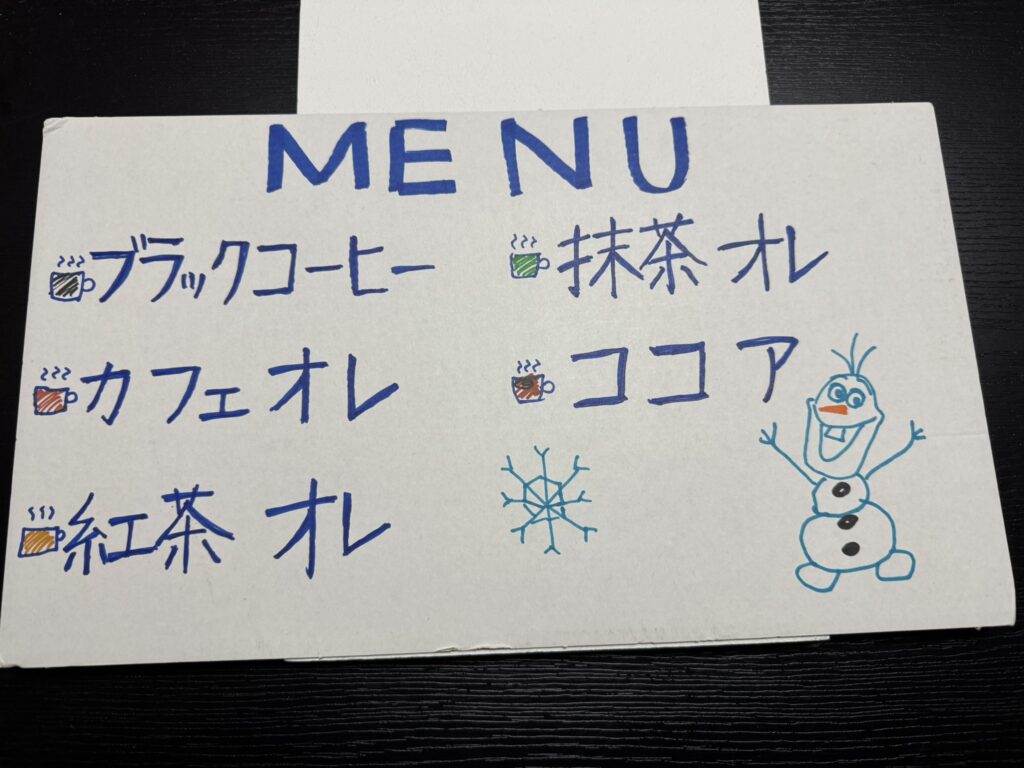 MENU
ブラックコーヒー
カフェオレ
紅茶オレ
抹茶オレ
ココア